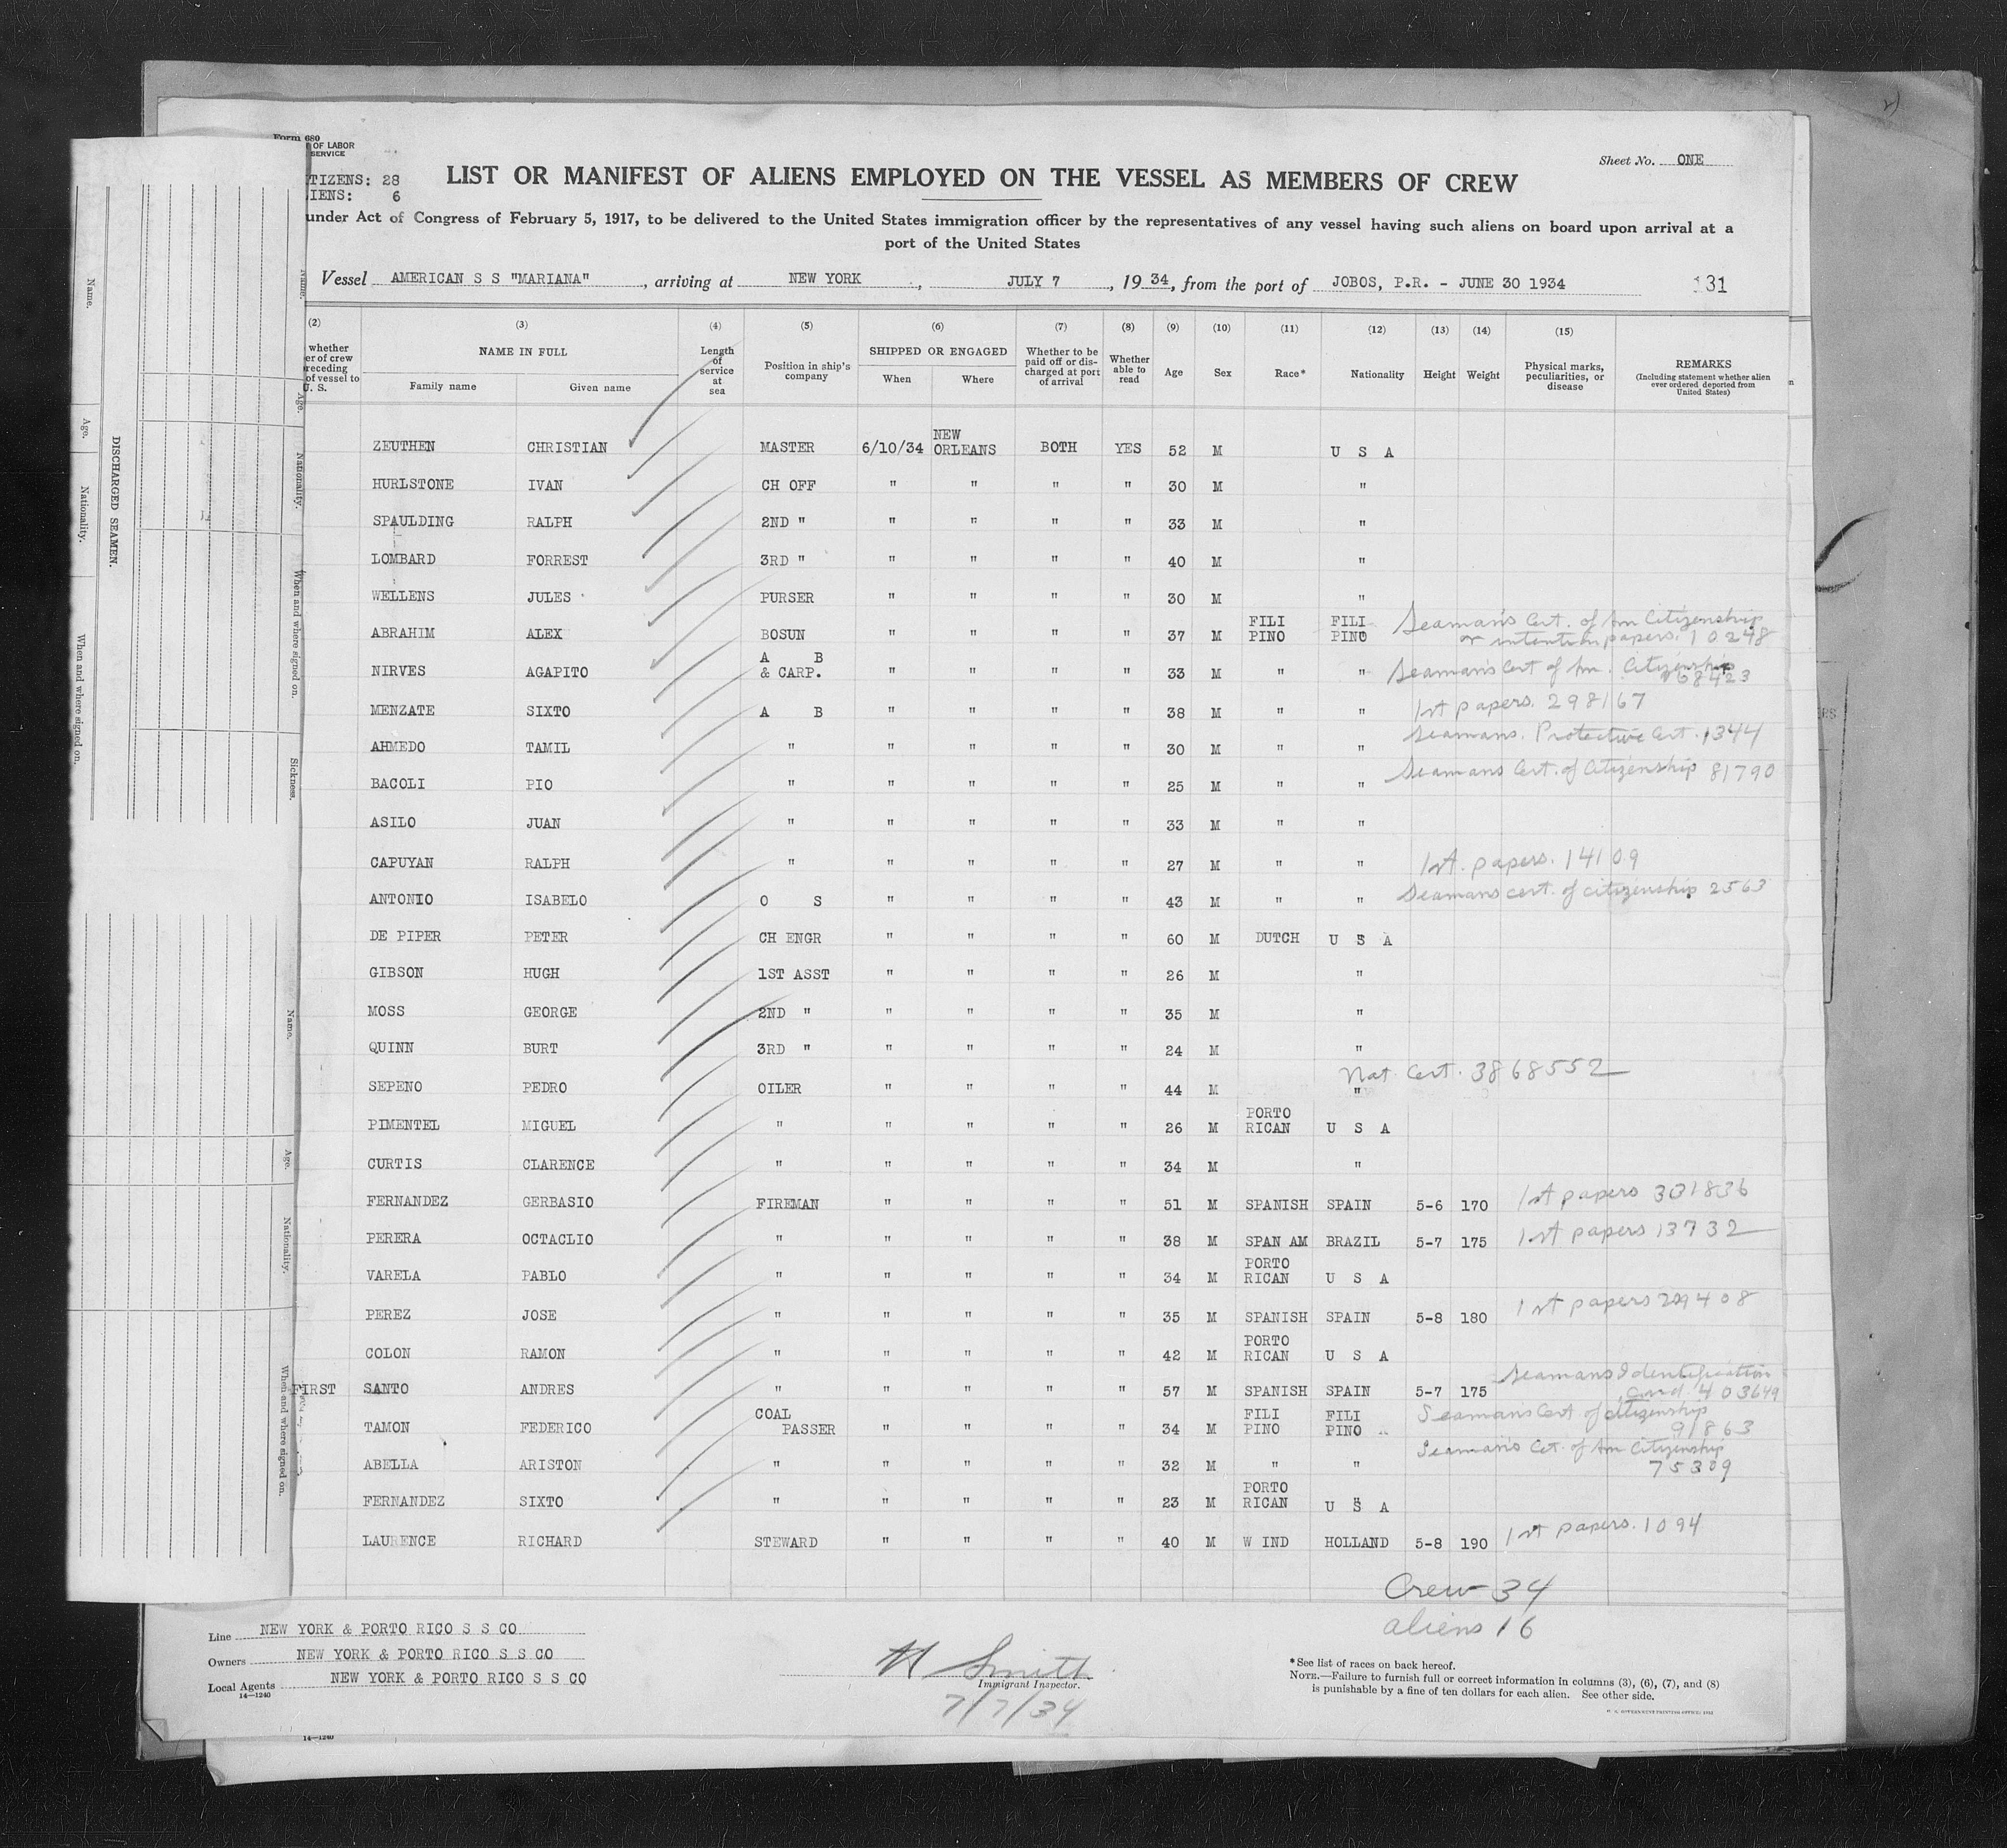 Form 680
OF LABOR
SERVICE
TIZENS: 28
IENS: 6
Sheet No. ONE
LIST OR MANIFEST OF ALIENS EMPLOYED ON THE VESSEL AS MEMBERS OF CREW
under Act of Congress of February 5, 1917, to be delivered to the United States immigration officer by the representatives of any vessel having such aliens on board upon arrival at a
port of the United States
Vessel AMERICAN S S "MARIANA", arriving at NEW YORK, JULY 7, 1934, from the port of JOBOS, P.R. - JUNE 30 1934 131
(2) (3) (4) (5) (6) (7) (8) (9) (10) (11) (12) (13) (14) (15)
whether
er of crew
receding
of vessel to
U. S.
NAME IN FULL
Family name Given name
Length
of
service
at
sea
Position in ship's
company
SHIPPED OR ENGAGED
When Where
Whether to be
paid off or dis-
charged at port
of arrival
Whether
able to
read
Age Sex Race* Nationality Height Weight
Physical marks,
peculiarities, or
disease
REMARKS
(Including statement whether alien
ever ordered deported from
United States)
ZEUTHEN CHRISTIAN MASTER 6/10/34 NEW ORLEANS BOTH YES 52 M U S A
HURLSTONE IVAN CH OFF " " " " 30 M "
SPAULDING RALPH 2ND " " " " " 33 M "
LOMBARD FORREST 3RD " " " " " 40 M "
WELLENS JULES PURSER " " " " 30 M "
ABRAHIM ALEX BOSUN " " " " 37 M FILI PINO FILI PINO Seaman's Cert. of Am Citizenship or intention papers. 10248
NIRVES AGAPITO A B & CARP. " " " " 33 M " " Seaman's Cert of Am. Citizenship 68423
MENZATE SIXTO A B " " " " 38 M " " 1st papers. 298167
AHMEDO TAMIL " " " " " 30 M " " Seamans. Protective Cert. 1344
BACOLI PIO " " " " " 25 M " " Seamans Cert. of Citizenship 81790
ASILO JUAN " " " " " 33 M " "
CAPUYAN RALPH " " " " " 27 M " " 1st. papers. 14109
ANTONIO ISABELO O S " " " " 43 M " " Seamans cert. of citizenship 2563
DE PIPER PETER CH ENGR " " " " 60 M DUTCH U S A
GIBSON HUGH 1ST ASST " " " " 26 M "
MOSS GEORGE 2ND " " " " " 35 M "
QUINN BURT 3RD " " " " " 24 M "
SEPENO PEDRO OILER " " " " 44 M " Nat. Cert. 3868552
PIMENTEL MIGUEL " " " " " 26 M PORTO RICAN U S A
CURTIS CLARENCE " " " " " 34 M "
FERNANDEZ GERBASIO FIREMAN " " " " 51 M SPANISH SPAIN 5-6 170 1st papers 301836
PERERA OCTACLIO " " " " " 38 M SPAN AM BRAZIL 5-7 175 1st papers 13732
VARELA PABLO " " " " " 34 M PORTO RICAN U S A
PEREZ JOSE " " " " " 35 M SPANISH SPAIN 5-8 180 1st papers 299408
COLON RAMON " " " " " 42 M PORTO RICAN U S A
FIRST SANTO ANDRES " " " " " 57 M SPANISH SPAIN 5-7 175 Seamans Identification card 403649
TAMON FEDERICO COAL PASSER " " " " 34 M FILI PINO FILI PINO Seaman's Cert of citizenship 91863
ABELLA ARISTON " " " " " 32 M " " Seaman's Cet. of Am Citizenship 75309
FERNANDEZ SIXTO " " " " " 23 M PORTO RICAN U S A
LAURENCE RICHARD STEWARD " " " " 40 M W IND HOLLAND 5-8 190 1st papers. 1094
Crew 34
aliens 16
Line NEW YORK & PORTO RICO S S CO
Owners NEW YORK & PORTO RICO S S CO
Local Agents NEW YORK & PORTO RICO S S CO
14—1240
H Smith
Immigrant Inspector.
7/7/34
*See list of races on back hereof.
NOTE.—Failure to furnish full or correct information in columns (3), (6), (7), and (8)
is punishable by a fine of ten dollars for each alien. See other side.
14—1240
DISCHARGED SEAMEN.
Name.
Age.
Nationality.
When and where signed on.
Name.
Age.
Nationality.
When and where signed on.
Sickness.
Name.
Age.
Nationality.
When and where signed on.